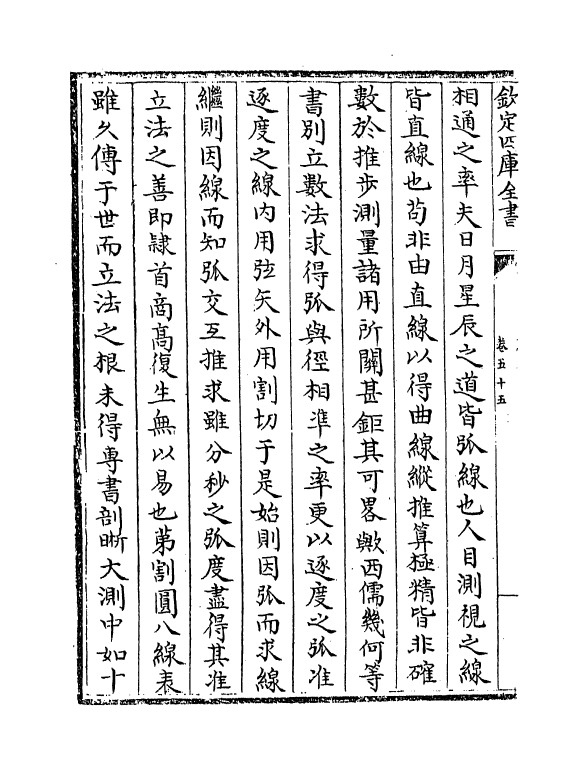 欽定四庫全書
卷五十五
相通之率夫日月星辰之道皆弧線也人目測視之線
皆直線也苟非由直線以得曲線縱推算極精皆非確
數於推步測量諸用所關甚鉅其可畧歟西儒幾何等
書別立數法求得弧與徑相準之率更以逐度之弧准
逐度之線内用弦矢外用割切于是始則因弧而求線
繼則因線而知弧交互推求雖分秒之弧度盡得其准
立法之善即隷首商髙復生無以易也第割圓八線表
雖久傳于世而立法之根未得專書剖晰大測中如十